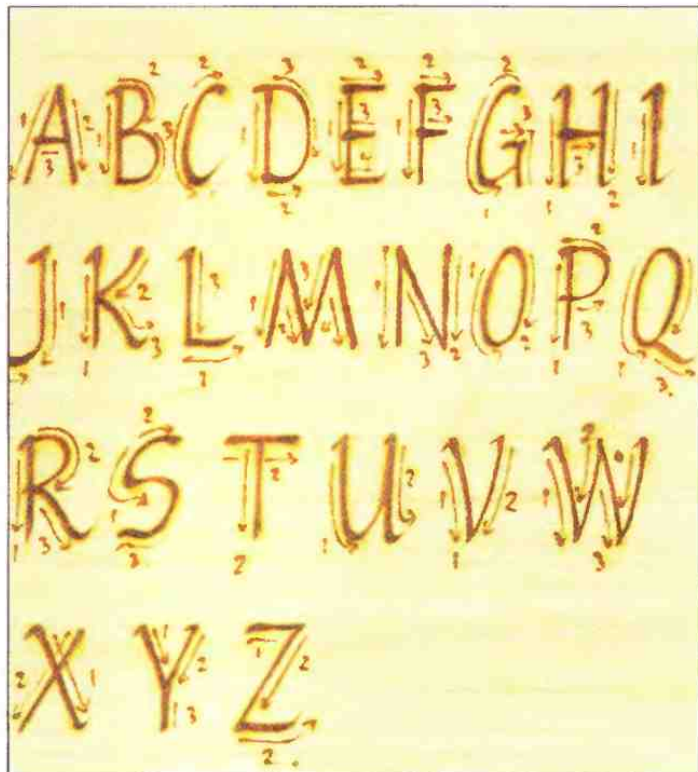 A B C D E F G H I
J K L M N O P Q
R S T U V W
X Y Z